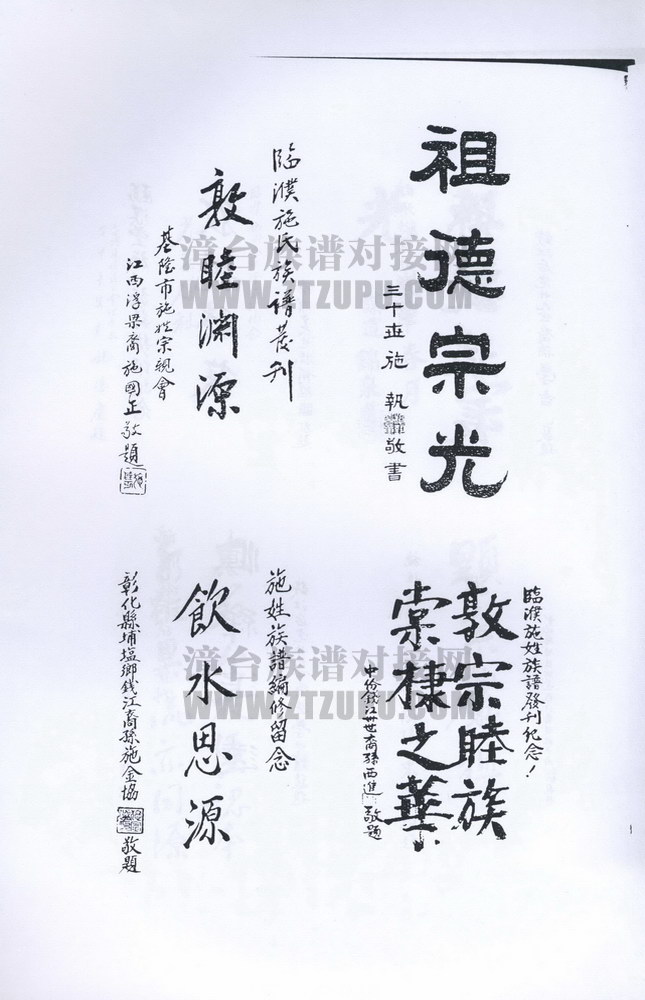 祖德宗光
三十世施 執 敬書
臨濮施氏族譜發刋
敦睦淵源
基隆市施姓宗親會
江西浮梁裔施國正敬題
臨濮施姓族譜發刊紀念！
敦宗睦族
棠棣之華
錢江卅世裔孫西進 敬題
施姓族譜編修留念
飲水思源
彰化縣埔塩鄉錢江裔孫施金協 敬題
漳台族谱对接网
WWW.ZTZUPU.COM
漳台族谱对接网
WWW.ZTZUPU.COM